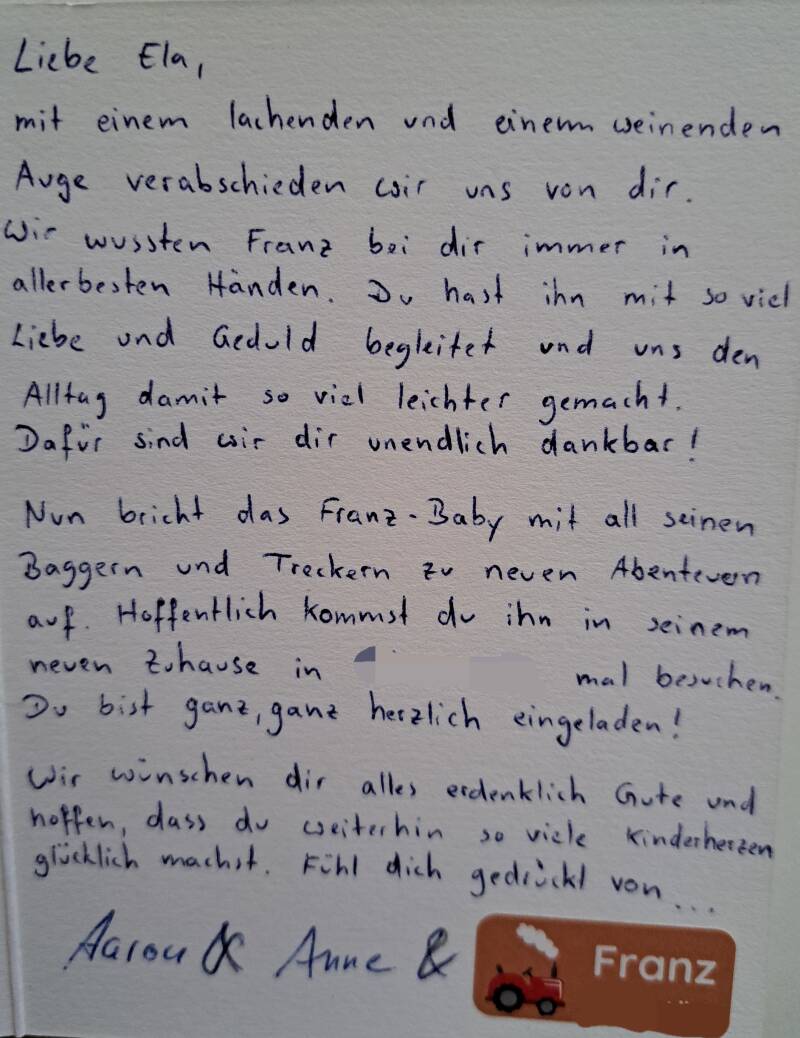 Liebe Ela,
mit einem lachenden und einem weinenden
Auge verabschieden wir uns von dir.
Wir wussten Franz bei dir immer in
allerbesten Händen. Du hast ihn mit so viel
Liebe und Geduld begleitet und uns den
Alltag damit so viel leichter gemacht.
Dafür sind wir dir unendlich dankbar!
Nun bricht das Franz-Baby mit all seinen
Baggern und Treckern zu neuen Abenteuern
auf. Hoffentlich kommst du ihn in seinem
neuen Zuhause in mal besuchen.
Du bist ganz, ganz herzlich eingeladen!
Wir wünschen dir alles erdenklich Gute und
hoffen, dass du weiterhin so viele Kinderherzen
glücklich machst. Fühl dich gedrückt von...
Aaron & Anne & Franz